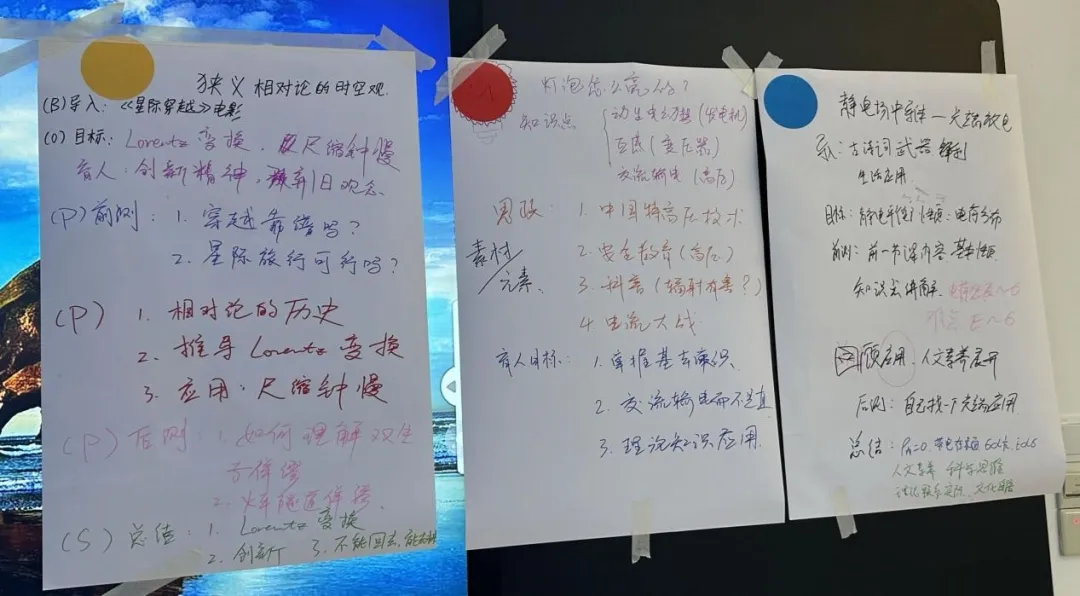 狭义相对论的时空观
(B)导入:《星际穿越》电影
(O)目标:Lorentz变换,尺缩钟慢
育人:创新精神,摒弃旧观念
(P)前测:1. 穿越靠谱吗?
2. 星际旅行可行吗?
(P) 1. 相对论的历史
2. 推导Lorentz变换
3. 应用:尺缩钟慢
(P)后测:1. 如何理解双生
子佯缪
2. 火车隧道佯缪、
(S)总结:1. Lorentz变换
2. 创新 3. 不能回去,能去
灯泡怎么亮的?
知识点
动生电动势(发电机)
互感(变压器)
交流输电(高压)
思政
素材/元素
1. 中国特高压技术
2. 安全教育(高压)
3. 科普(辐射有害?)
4. 电流大战
育人目标:1. 掌握基本知识
2. 交流输电而不是直
3. 理论知识应用.
静电场中导体—尖端放电
导:古诗词 武器 犀利
生活应用
目标:静电平衡 性质:电荷分布
前测:前一节课内容 基本性质
知识点讲解
难点 E~б
回顾应用 人文素养展开
后测:自己找一下尖端应用
总结:
人文素养 科学思维
理论联系实际、文化自信